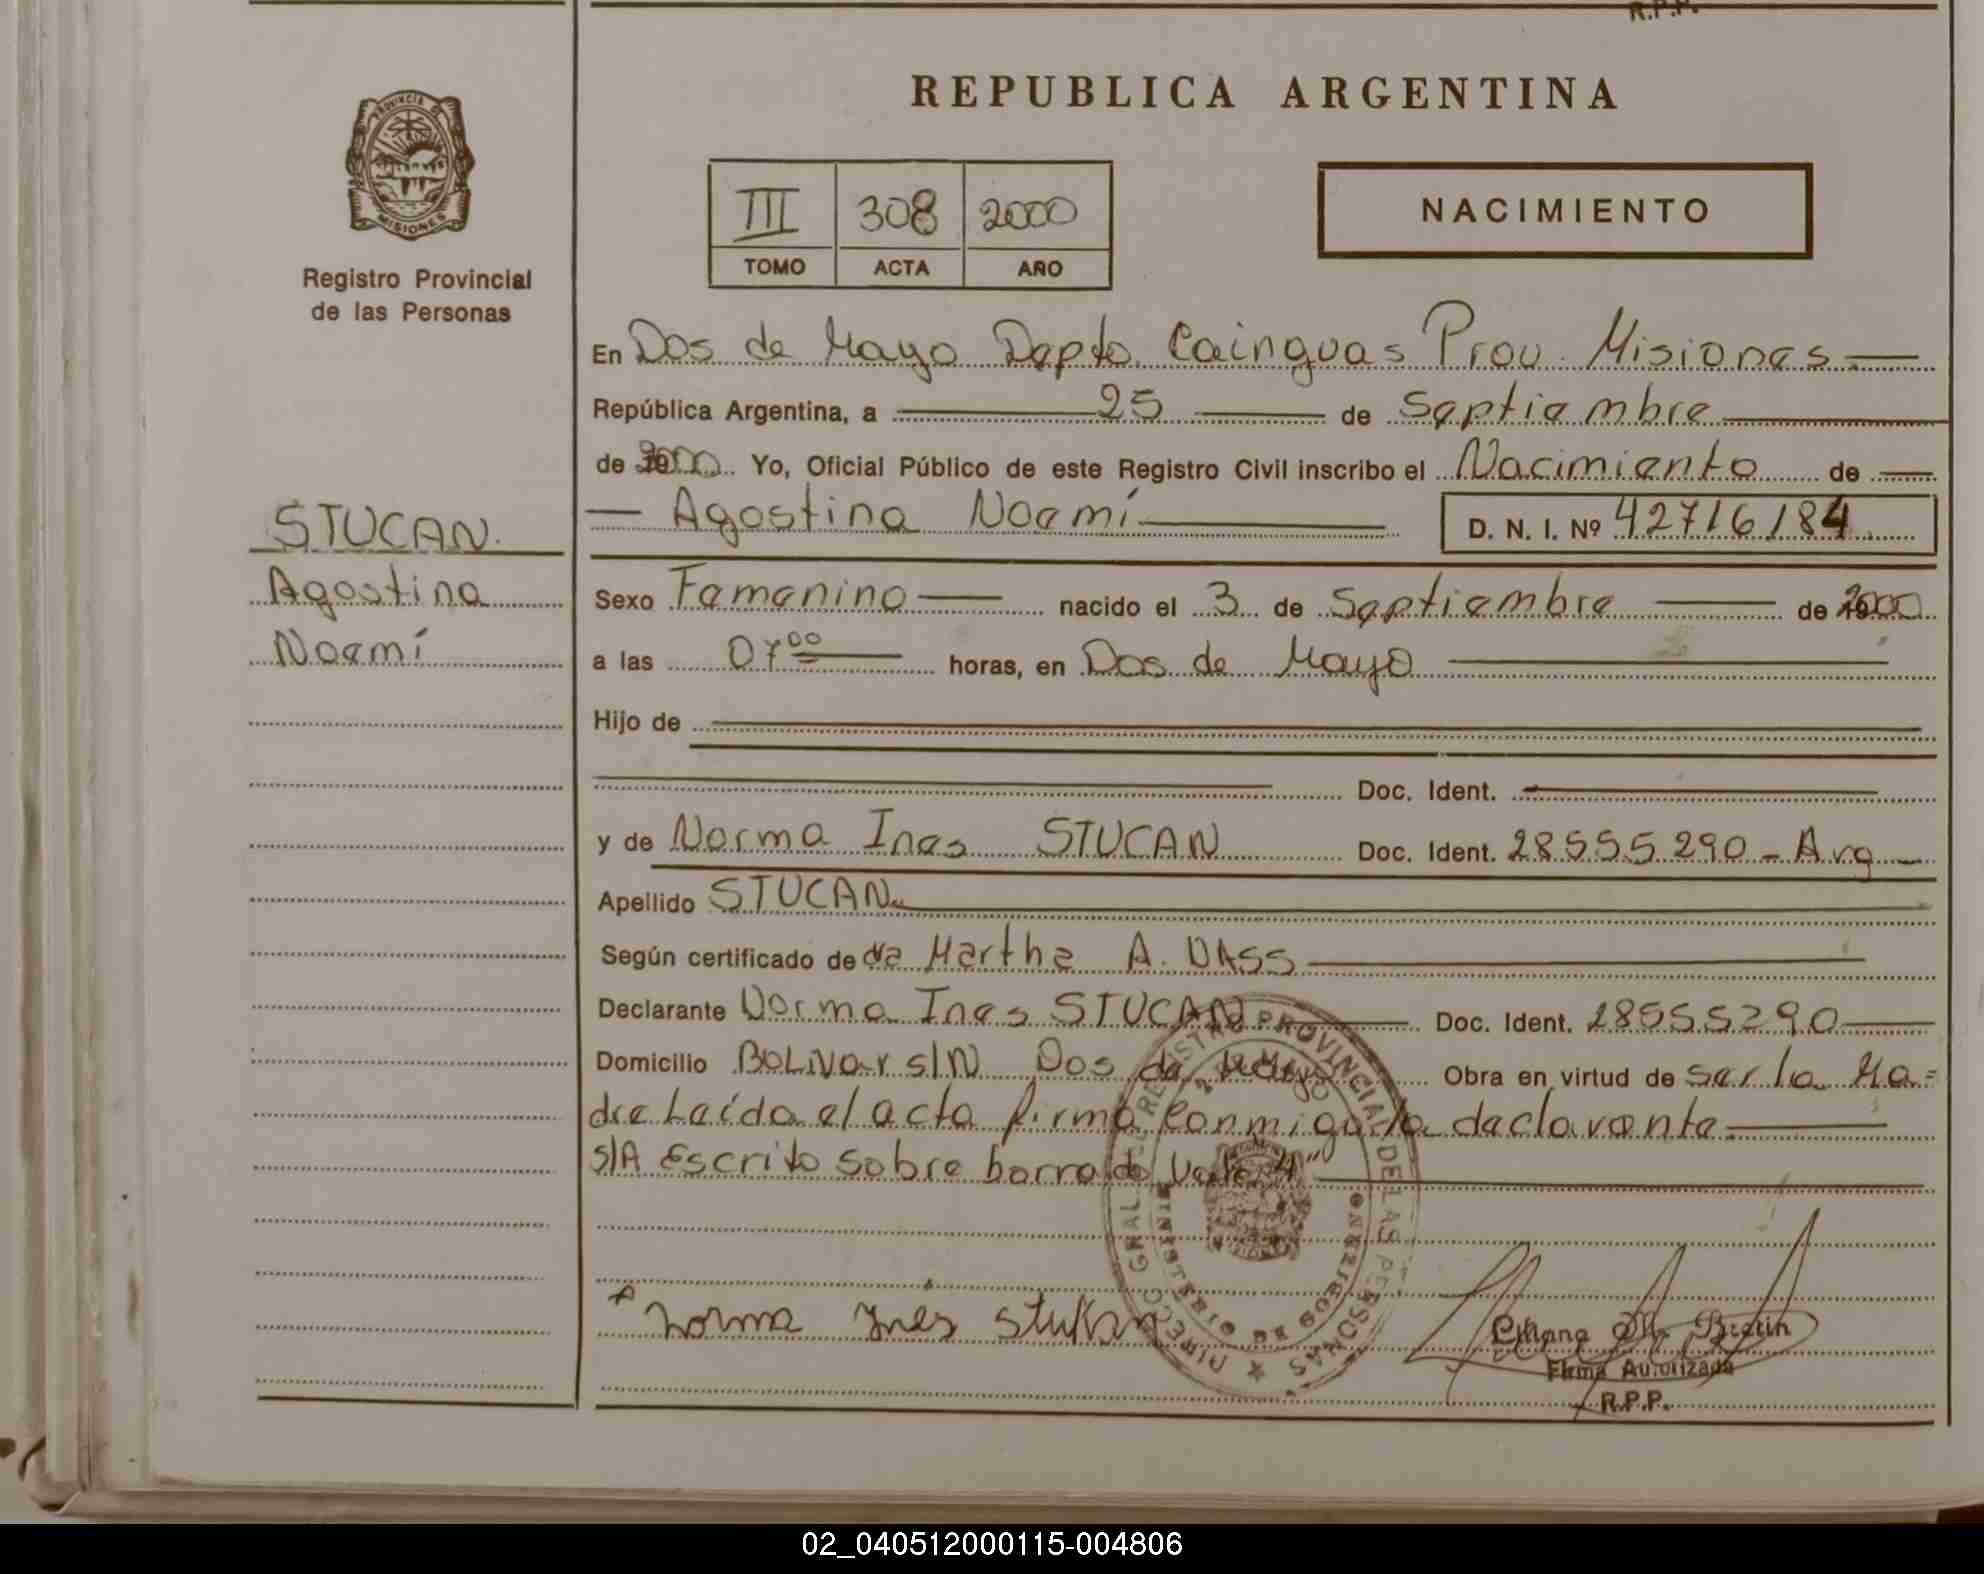 R.P.P.
REPUBLICA ARGENTINA
PROVINCIA DE
MISIONES
Registro Provincial
de las Personas
III 308 2000
TOMO ACTA AÑO
NACIMIENTO
En Dos de Mayo Depto. Cainguas Prov. Misiones
República Argentina, a 25 de Septiembre
de 2000 Yo, Oficial Público de este Registro Civil inscribo el Nacimiento de
Agostina Noemí D. N. I. Nº 42716184
STUCAN.
Agostina
Noemí
Sexo Femenino nacido el 3 de Septiembre de 2000
a las 07 00 horas, en Dos de Mayo
Hijo de
Doc. Ident.
y de Norma Ines STUCAN Doc. Ident. 28555290 - Arg
Apellido STUCAN
Según certificado de da Martha A. DASS
Declarante Norma Ines STUCAN Doc. Ident. 28555290
Domicilio BOLIVar s/N Dos de Mayo Obra en virtud de ser la Ma=
dre Leída el acta firma conmigo la declarante
s/A Escrito sobre borrado Vale "4"
DIRECC GRAL. DEL REGISTRO PROVINCIAL DE LAS PERSONAS
MINISTERIO DE GOBIERNO
Norma Ynés Stukan
Liliana M. Bretin
Firma Autorizada
R.P.P.
02_040512000115-004806